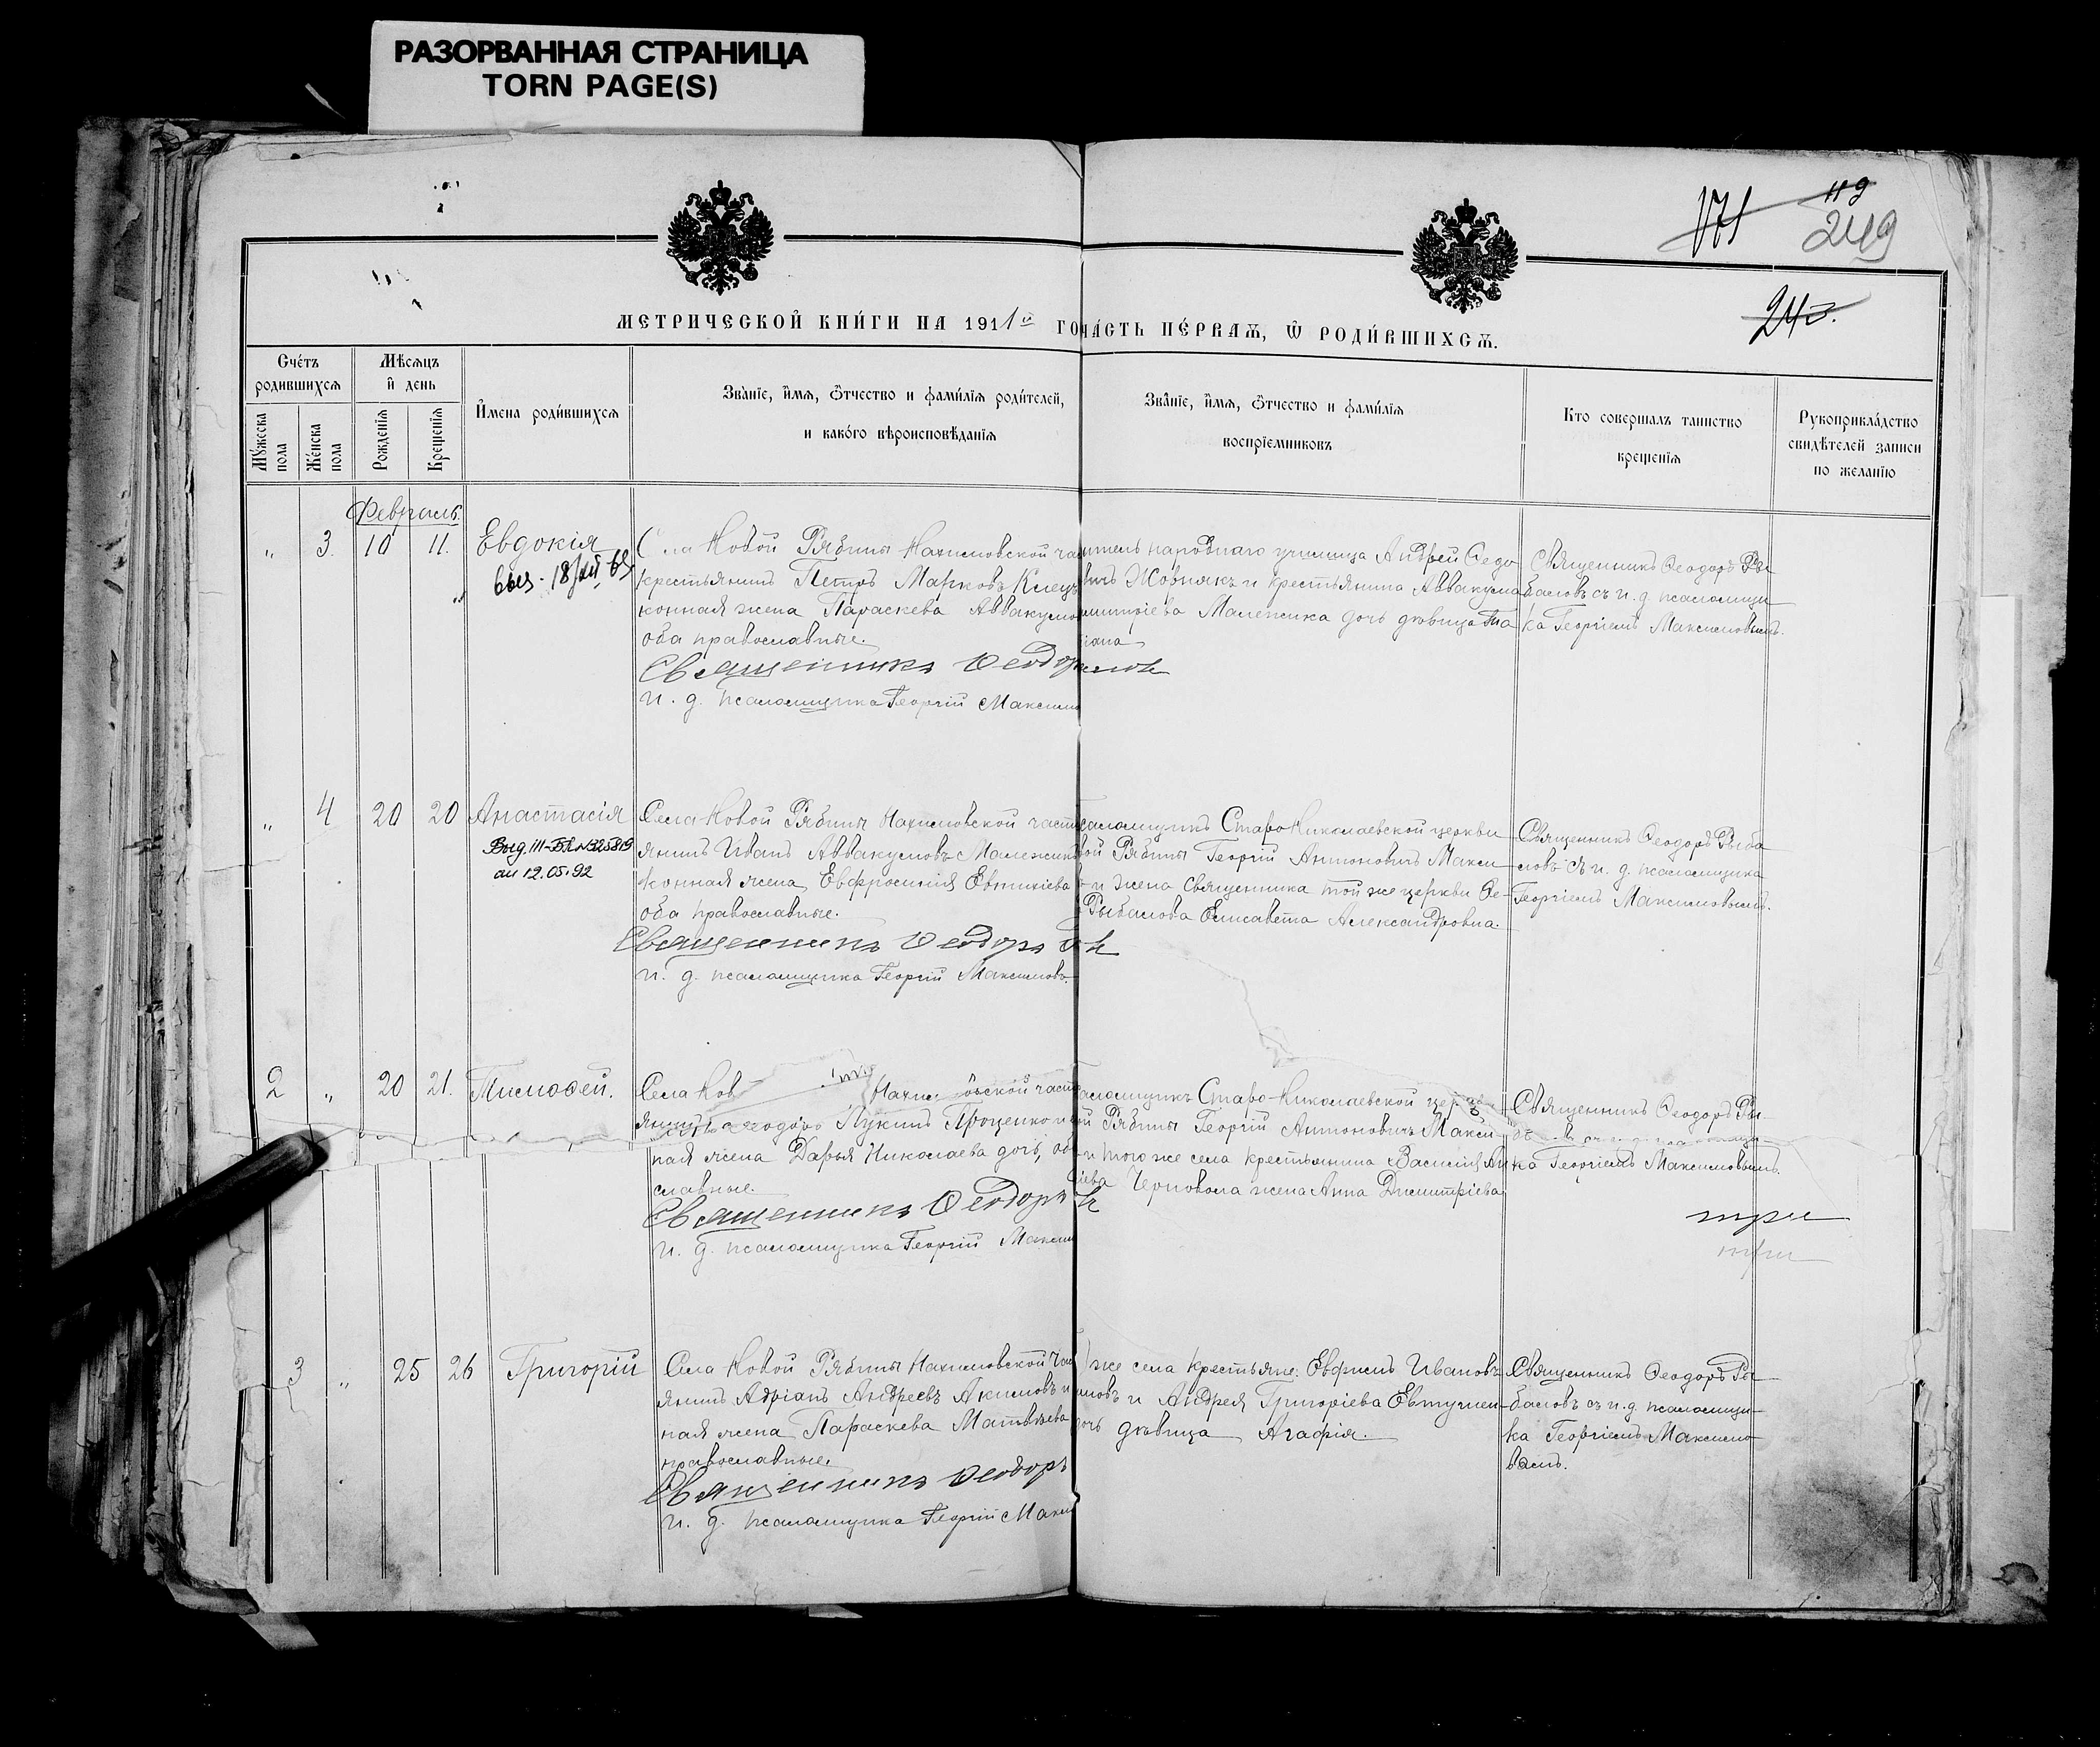 РАЗОРВАННАЯ СТРАНИЦА
TORN PAGE(S)
171 119
249
240.
МЕТРИЧЕСКОЙ КНИ́ГИ НА 1911 го ГО
ЧА́СТЬ ПЕ́РВАѦ, Ѿ РОДИ́ВШИХСѦ.
Сче́тъ родившихсѧ
Мѣсѧцъ и҆ день
Мꙋ́жеска пола
Же́нска пола
Рожденїѧ
Крещенїѧ
И҆мена роди́вшихсѧ
Зва́нїе, и҆мѧ, ѻ҆тчество и фами́лїѧ роди́телей,
и како́го вѣроисповѣ́данїѧ
Зва́нїе, и҆мѧ, ѻ҆тчество и фами́лїѧ
воспрїемниковъ
Кто совершалъ таинство
крещенїѧ
Рукоприкла́дство
свидѣ́телей записи
по желанїю
Февраль.
" 3. 10 11. Евдокія
Села Новой Рябины Нахимовской ча
крестьянинъ Петръ Марковъ
конная жена Параскева Аввакумо
оба православные.
Священникъ Ѳеодор
и. д. псаломщика Георгій Максимо
итель народнаго училища Андрей Ѳедо
вичъ Жовнякъ и крестьянина Аввакума
митріева Малежика дочь дѣвица Та
іана
Священникъ Ѳеодоръ Ры
баловъ съ и. д. псаломщи
ка Георгіемъ Максимовымъ.
" 4 20 20 Анастасія
Выд. III-БК №325819
от 12.05.92
Села Новой Рябины Нахимовской части
янинъ Иванъ Аввакумовъ Малежик
конная жена Евфросинія Евтихіева
оба православные.
Священникъ Ѳеодоръ
и. д. псаломщика Георгій Максимовъ.
саломщикъ Старо-Николаевской церкви
вой Рябины Георгій Антоновичъ Макси
и жена священника той же церкви Ѳе-
Рыбалова Елисавета Александровна.
Священникъ Ѳеодоръ Рыба
ловъ съ и. д. псаломщика
Георгіемъ Максимовымъ.
2 " 20 21. Тимоѳей.
Села Нов Нахимовской част
янинъ Ѳеодоръ Лукинъ Проценко и
ная жена Дарья Николаева дочь, об
славные.
Священникъ Ѳеодоръ
и. д. псаломщика Георгій Макси
саломщикъ Старо-Николаевской церкви
ой Рябины Георгій Антоновичъ Макси
и того же села крестьянина Василія Ан
іева Черновола жена Анна Димитріева
Священникъ Ѳеодоръ Ры
ка Георгіемъ Максимовымъ.
три
три
3 " 25 26 Григорій
Села Новой Рябины Нахимовской Час
янинъ Адріанъ Андреевъ Акимовъ и
ная жена Параскева Матвѣева
православные.
Священникъ Ѳеодоръ
и. д. псаломщика Георгій Макси
же села крестьяне: Евфимъ Ивановъ
имовъ и Андрея Григоріева Евтушен
дочь дѣвица Агафія.
Священникъ Ѳеодоръ Ры
баловъ съ и. д. псаломщи
ка Георгіемъ Максимо
вымъ.